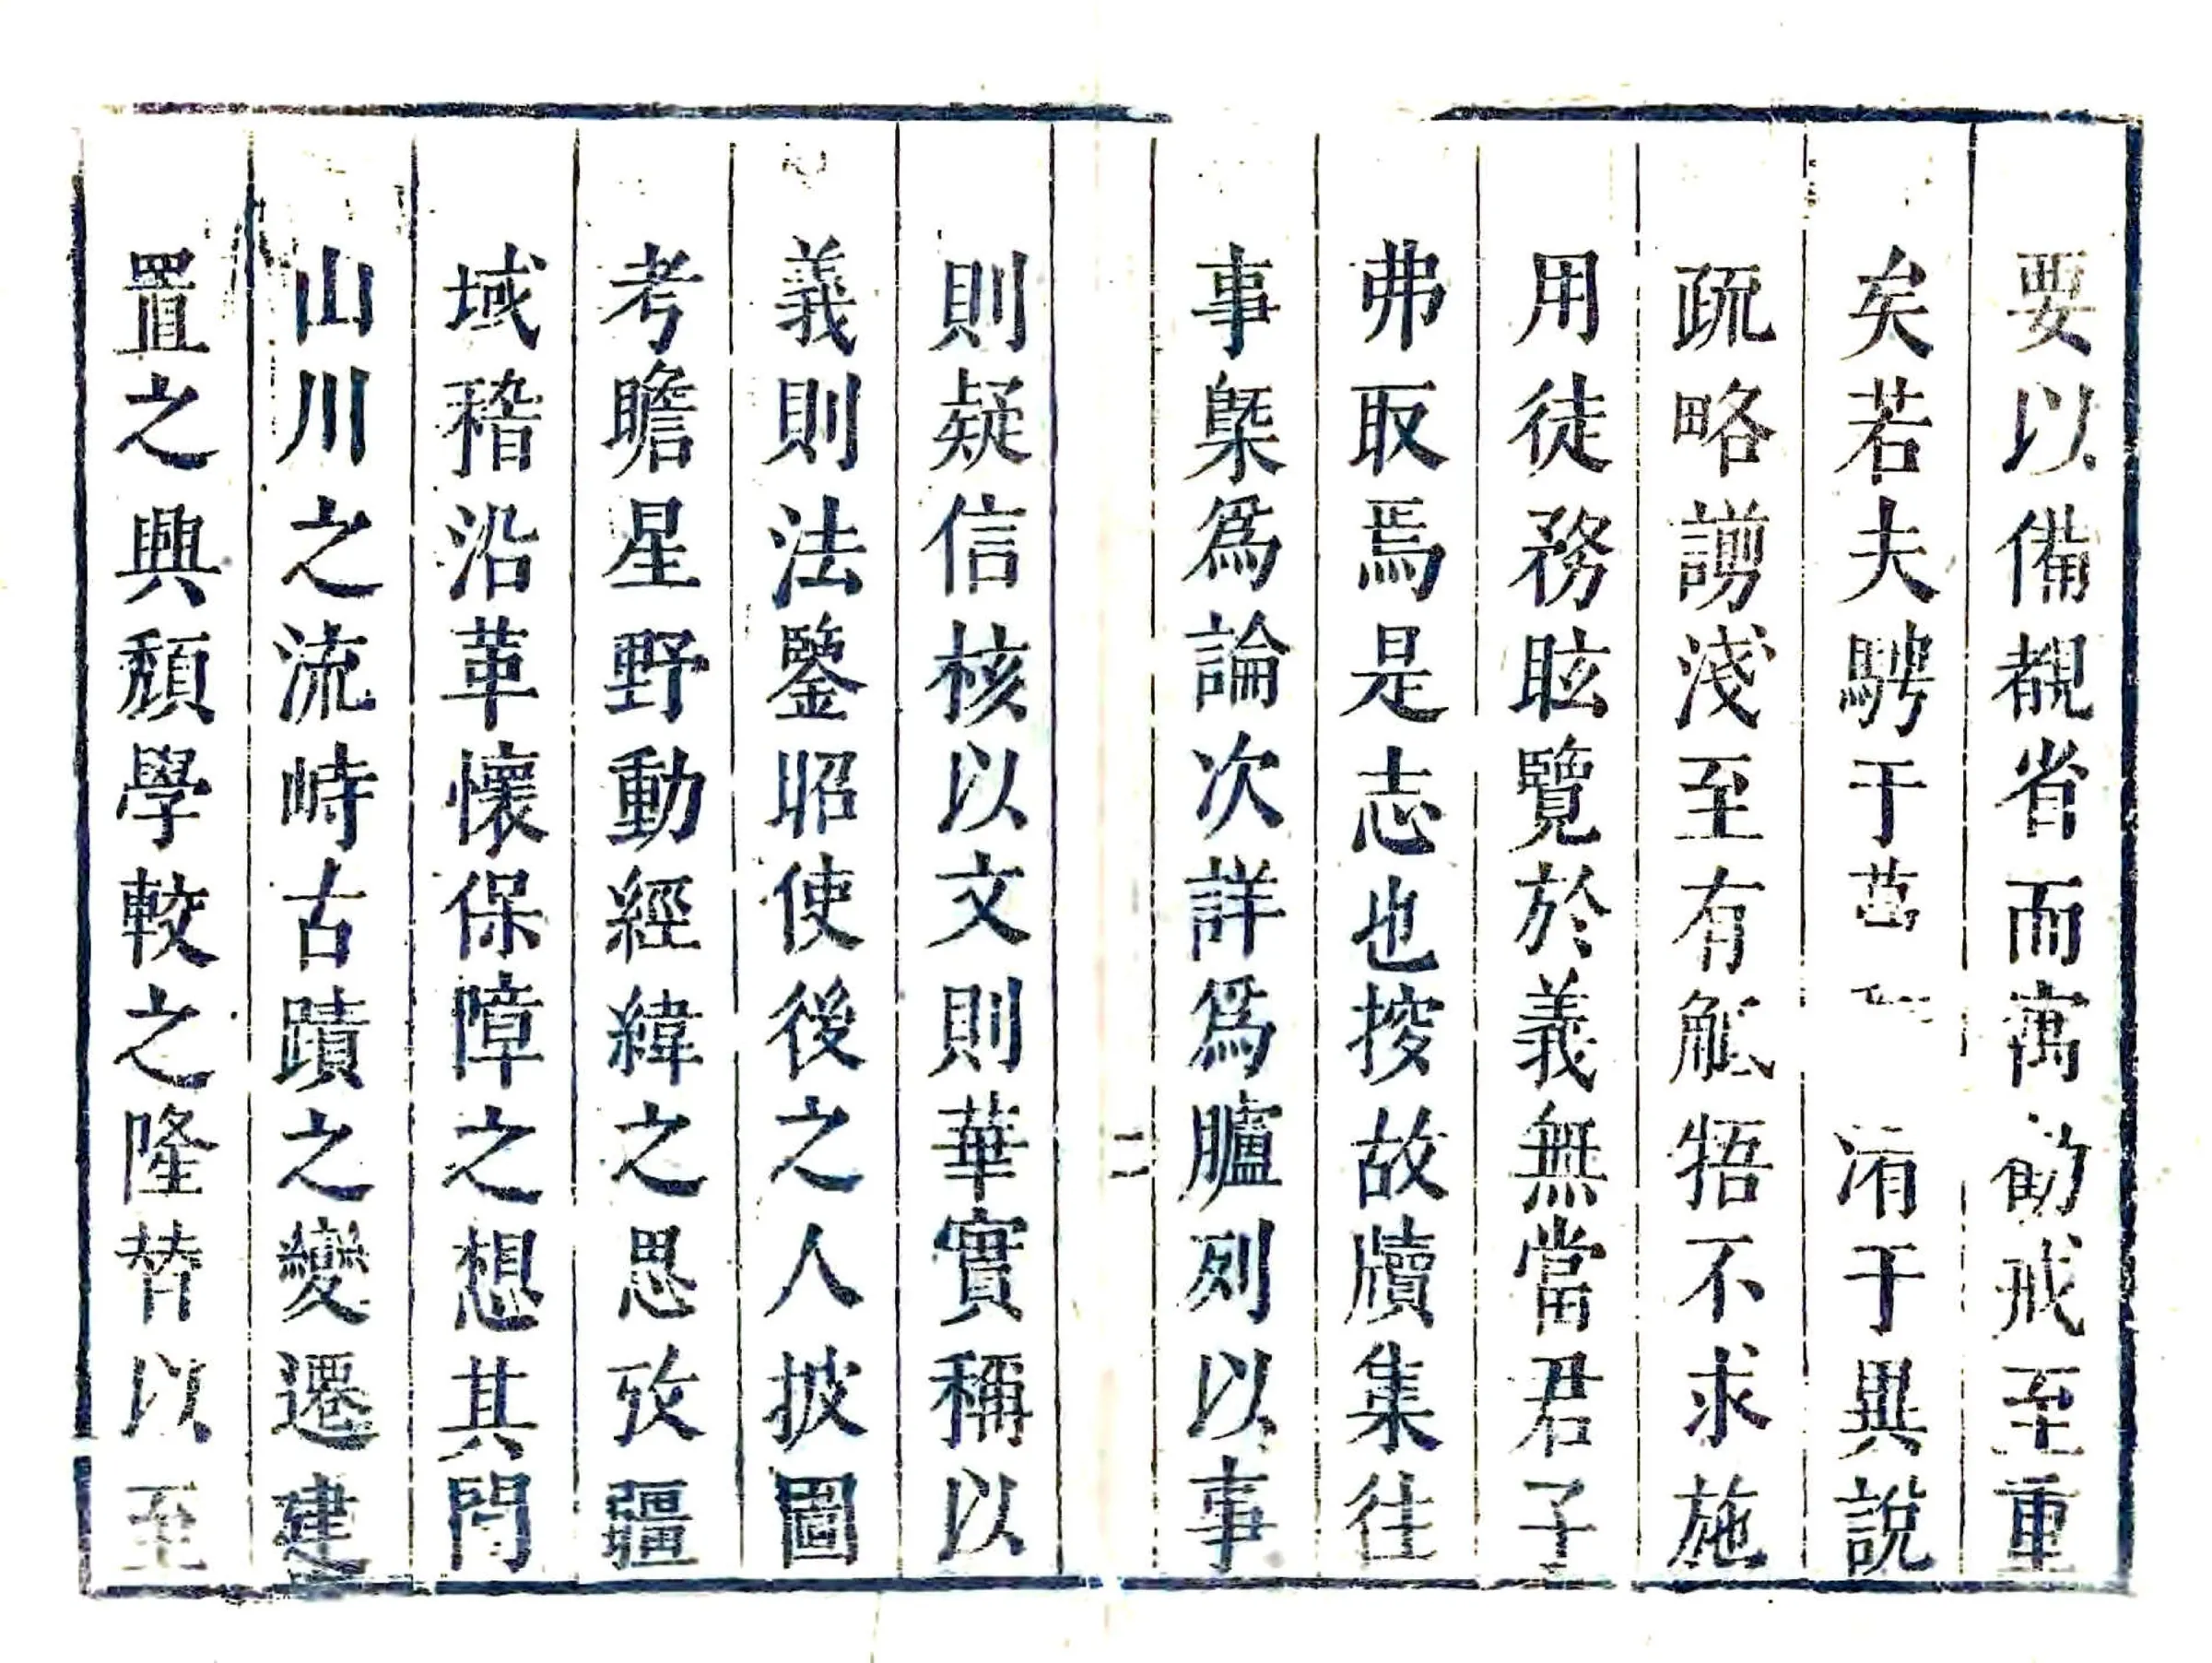 要以備覩省而寓勸戒至重
矣若夫騁于淆于異說
疏略謭淺至有觝牾不求施
用徒務眩覽於義無當君子
弗取焉是志也按故牘集往
事槩爲論次詳爲臚列以事
二
則疑信核以文則華實稱以
義則法鑒昭使後之人披圖
考瞻星野動經緯之思攷疆
域稽沿革懷保障之想其問
山川之流峙古蹟之變遷建
置之興頽學較之隆替以至